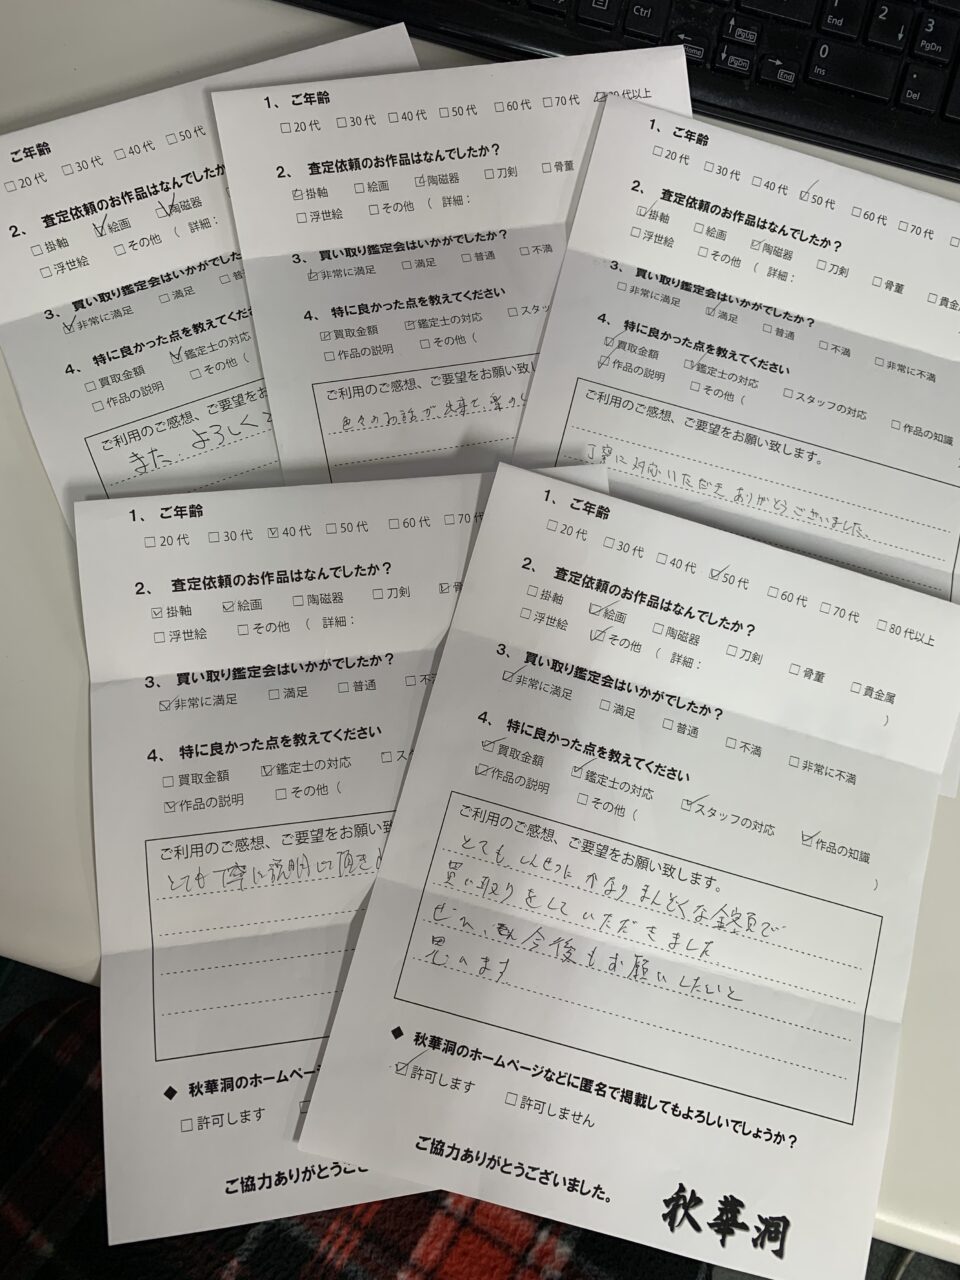 Ctrl
PgUp
Home
PgDn
End
1
End
2
3
PgDn
0
Ins
.
Del
ご年齢
□20代 □30代 □40代 □50代
2、 査定依頼のお作品はなんでしたか
□掛軸 ☑絵画 ☑陶磁器
□浮世絵 □その他 ( 詳細:
3、 買い取り鑑定会はいかがでした
☑非常に満足 □満足 □普
4、 特に良かった点を教えてくださ
□買取金額 ☑鑑定士の対応
□作品の説明 □その他 (
ご利用のご感想、ご要望を
また、よろしく
1、 ご年齢
□20代 □30代 □40代 □50代 □60代 □70代 ☑80代以上
2、 査定依頼のお作品はなんでしたか?
☑掛軸 □絵画 ☑陶磁器 □刀剣 □骨董
□浮世絵 □その他 ( 詳細:
3、 買い取り鑑定会はいかがでしたか?
☑非常に満足 □満足 □普通 □不満
4、 特に良かった点を教えてください
☑買取金額 ☑鑑定士の対応 □スタッ
□作品の説明 □その他 (
ご利用のご感想、ご要望をお願い致し
色々のお話が出来て、楽のし
1、 ご年齢
□20代 □30代 □40代 ☑50代 □60代 □70代
2、 査定依頼のお作品はなんでしたか?
☑掛軸 □絵画 ☑陶磁器 □刀剣 □骨董 □貴金
□浮世絵 □その他 ( 詳細:
3、 買い取り鑑定会はいかがでしたか?
□非常に満足 ☑満足 □普通 □不満 □非常に不満
4、 特に良かった点を教えてください
☑買取金額 ☑鑑定士の対応 □スタッフの対応 □作品の知識
☑作品の説明 □その他 (
ご利用のご感想、ご要望をお願い致します。
丁寧に対応いただき ありがとうございました。
1、 ご年齢
□20代 □30代 ☑40代 □50代 □60代 □70代
2、 査定依頼のお作品はなんでしたか?
☑掛軸 ☑絵画 □陶磁器 □刀剣 ☑骨
□浮世絵 □その他 ( 詳細:
3、 買い取り鑑定会はいかがでしたか?
☑非常に満足 □満足 □普通 □不満
4、 特に良かった点を教えてください
□買取金額 ☑鑑定士の対応 □スタ
☑作品の説明 □その他 (
ご利用のご感想、ご要望をお願い致
とても丁寧に説明して頂き
◆ 秋華洞のホームペー
□許可します
ご協力ありがとうござ
1、 ご年齢
□20代 □30代 □40代 ☑50代 □60代 □70代 □80代以上
2、 査定依頼のお作品はなんでしたか?
□掛軸 ☑絵画 □陶磁器 □刀剣 □骨董 □貴金属
□浮世絵 ☑その他 ( 詳細: )
3、 買い取り鑑定会はいかがでしたか?
☑非常に満足 □満足 □普通 □不満 □非常に不満
4、 特に良かった点を教えてください
☑買取金額 ☑鑑定士の対応 ☑スタッフの対応 ☑作品の知識
☑作品の説明 □その他 ( )
ご利用のご感想、ご要望をお願い致します。
とても しんせつに かなり まんぞくな 金額で
買い取りをしていただきました
ぜひ、今後もお願いしたいと
思います
◆ 秋華洞のホームページなどに匿名で掲載してもよろしいでしょうか?
☑許可します □許可しません
ご協力ありがとうございました。
秋華洞